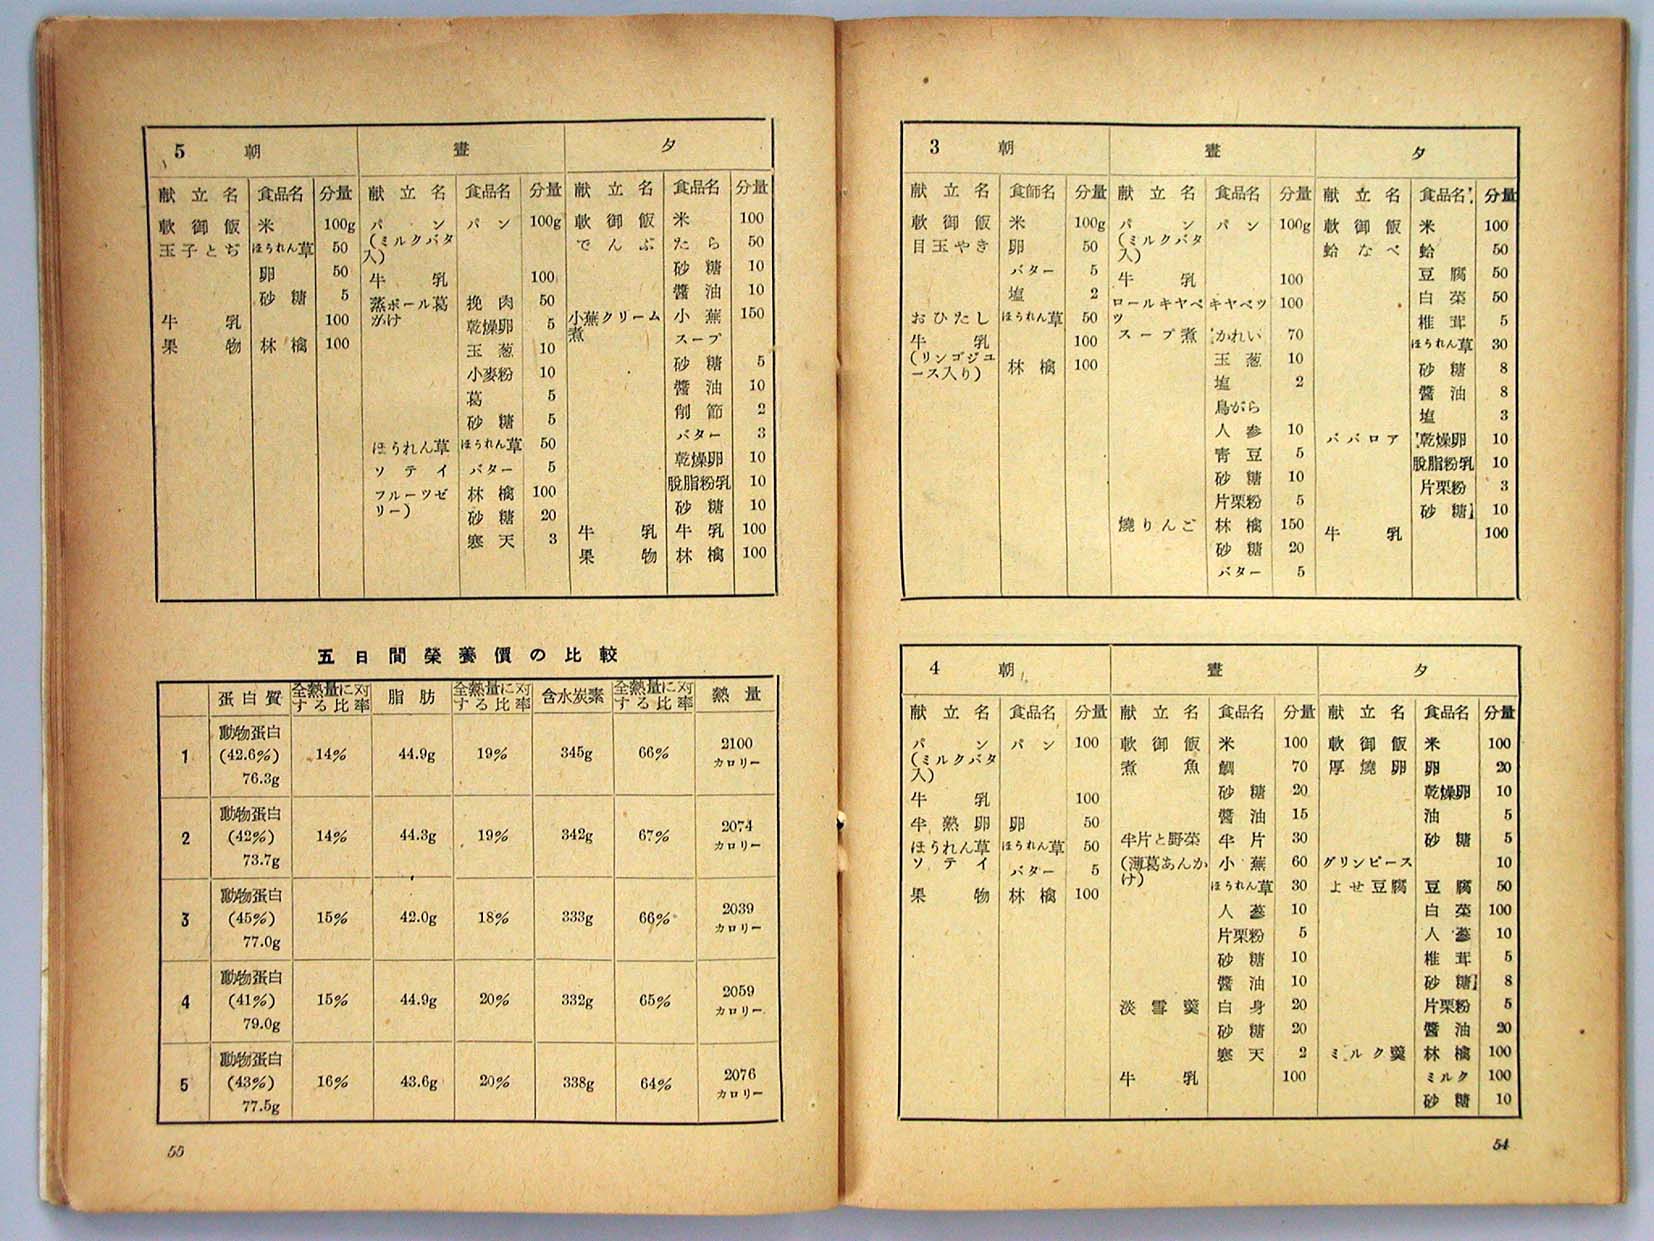 3 朝
献立名 食師名 分量
軟御飯 米 100g
目玉やき 卵 50
バター 5
塩 2
おひたし ほうれん草 50
牛乳 100
(リンゴジユ
ース入り) 林檎 100
晝
献立名 食品名 分量
パン パン 100g
(ミルクバタ
入)
牛乳 100
ロールキヤベ キヤベツ 100
ツ
スープ煮 かれい 70
玉葱 10
塩 2
鳥がら
人参 10
青豆 5
砂糖 10
片栗粉 5
燒りんご 林檎 150
砂糖 20
バター 5
夕
献立名 食品名 分量
軟御飯 米 100
蛤なべ 蛤 50
豆腐 50
白菜 50
椎茸 5
ほうれん草 30
砂糖 8
醬油 8
塩 3
ババロア 乾燥卵 10
脫脂粉乳 10
片栗粉 3
砂糖 10
牛乳 100
4 朝
献立名 食品名 分量
パン パン 100
(ミルクバタ
入)
牛乳 100
半熟卵 卵 50
ほうれん草 ほうれん草 50
ソテイ バター 5
果物 林檎 100
晝
献立名 食品名 分量
軟御飯 米 100
煮魚 鯛 70
砂糖 20
醬油 15
半片と野菜 半片 30
(薄葛あんか 小蕪 60
け) ほうれん草 30
人蔘 10
片栗粉 5
砂糖 10
醬油 10
淡雪羹 白身 20
砂糖 20
寒天 2
牛乳 100
夕
献立名 食品名 分量
軟御飯 米 100
厚燒卵 卵 20
乾燥卵 10
油 5
砂糖 5
グリンピース 10
よせ豆腐 豆腐 50
白菜 100
人蔘 10
椎茸 5
砂糖 8
片栗粉 5
醬油 20
ミルク羹 林檎 100
ミルク 100
砂糖 10
54
5 朝
献立名 食品名 分量
軟御飯 米 100g
玉子とぢ ほうれん草 50
卵 50
砂糖 5
牛乳 100
果物 林檎 100
晝
献立名 食品名 分量
パン パン 100g
(ミルクバタ
入)
牛乳 100
蒸ボール葛 挽肉 50
がけ 乾燥卵 5
玉葱 10
小麥粉 10
葛 5
砂糖 5
ほうれん草 ほうれん草 50
ソテイ バター 5
フルーツゼ 林檎 100
リー) 砂糖 20
寒天 3
夕
献立名 食品名 分量
軟御飯 米 100
でんぶ たら 50
砂糖 10
醬油 10
小蕪クリーム 小蕪 150
煮 スープ
砂糖 5
醬油 10
削節 2
バター 3
乾燥卵 10
脫脂粉乳 10
砂糖 10
牛乳 牛乳 100
果物 林檎 100
五日間榮養價の比較
蛋白質 全熱量に対する比率 脂肪 全熱量に対する比率 含水炭素 全熱量に対する比率 熱量
1 動物蛋白(42.6%)76.3g 14% 44.9g 19% 345g 66% 2100カロリー
2 動物蛋白(42%)73.7g 14% 44.3g 19% 342g 67% 2074カロリー
3 動物蛋白(45%)77.0g 15% 42.0g 18% 333g 66% 2039カロリー
4 動物蛋白(41%)79.0g 15% 44.9g 20% 332g 65% 2059カロリー
5 動物蛋白(43%)77.5g 16% 43.6g 20% 338g 64% 2076カロリー
55